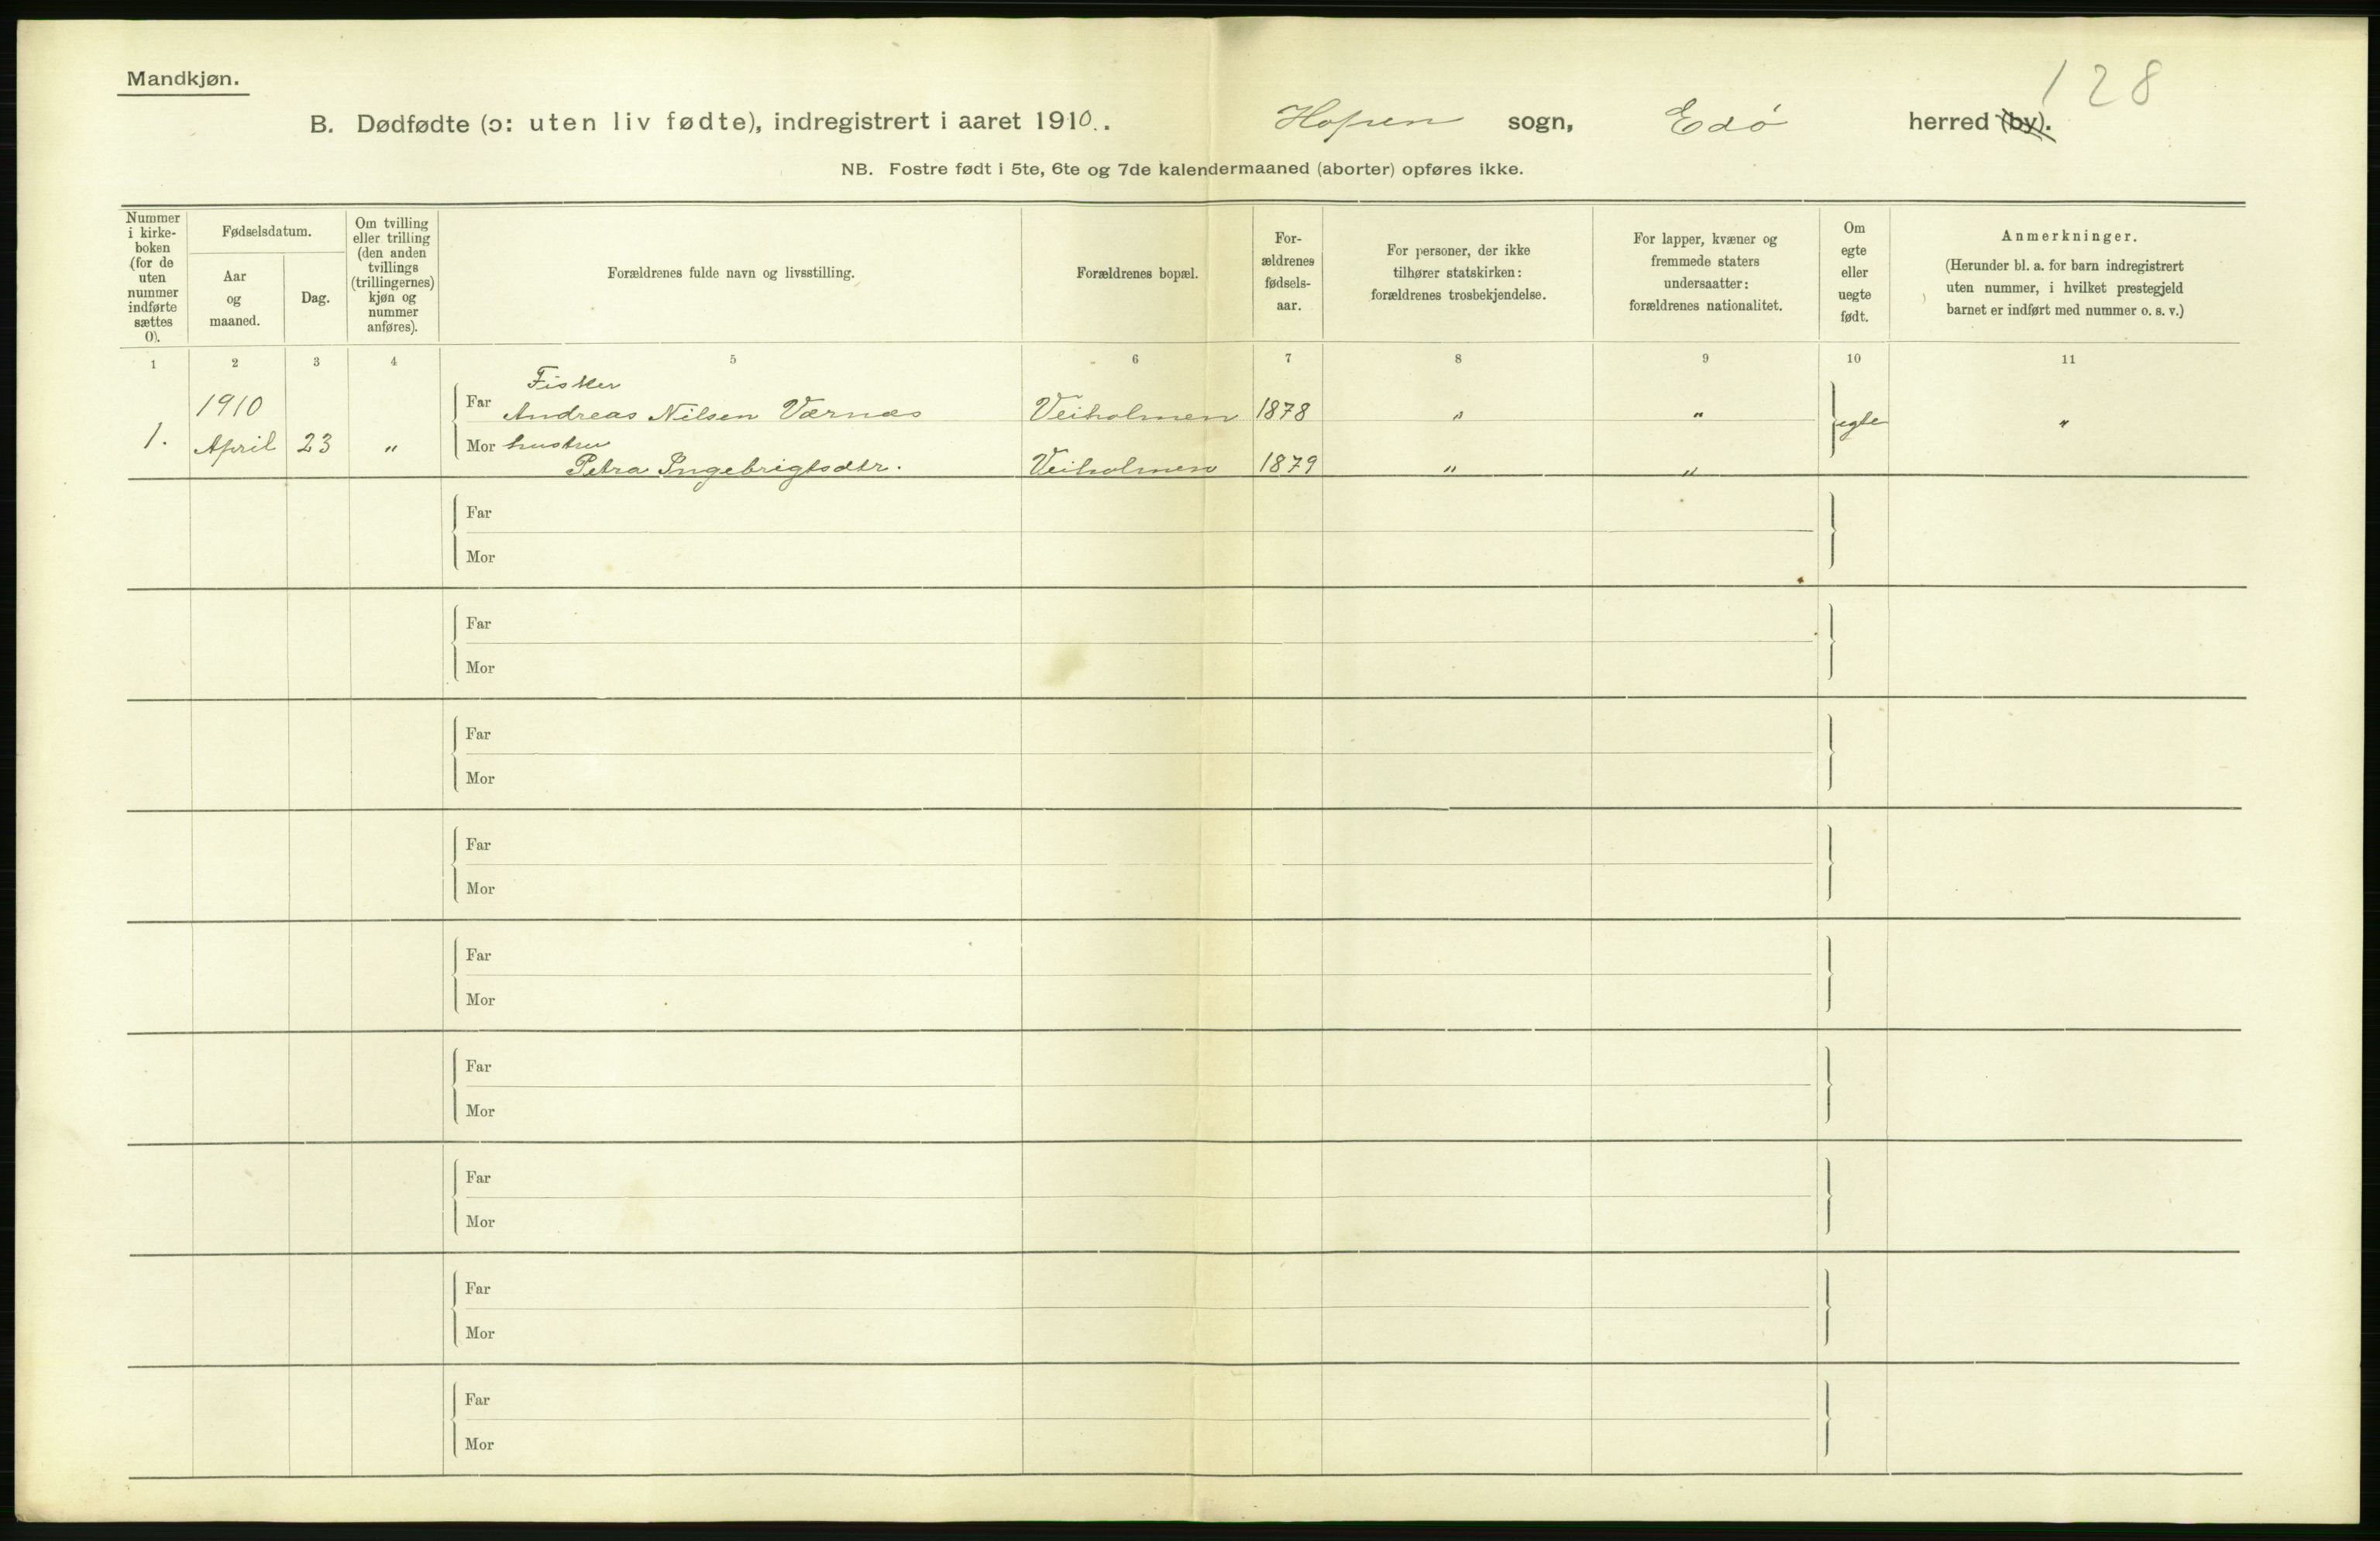 128
Mandkjøn.
B. Dødfødte (ɔ: uten liv fødte), indregistrert i aaret 1910. . Hopen sogn, Edø herred (by).
NB. Fostre født i 5te, 6te og 7de kalendermaaned (aborter) opføres ikke.
Nummer
i kirke-
boken
(for de
uten
nummer
indførte
sættes
0).
Fødselsdatum.
Aar
og
maaned.
Dag.
Om tvilling
eller trilling
(den anden
tvillings
(trillingernes)
kjøn og
nummer
anføres).
Forældrenes fulde navn og livsstilling.
Forældrenes bopæl.
For-
ældrenes
fødsels-
aar.
For personer, der ikke
tilhører statskirken:
forældrenes trosbekjendelse.
For lapper, kvæner og
fremmede staters
undersaatter:
forældrenes nationalitet.
Om
egte
eller
uegte
født.
Anmerkninger.
(Herunder bl. a. for barn indregistrert
uten nummer, i hvilket prestegjeld
barnet er indført med nummer o. s. v.)
1 2 3 4 5 6 7 8 9 10 11
1.
1910
April 23 "
Fisker
Far Andreas NilsenVærnæs Veiholmen 1878 " " egte "
Mor hustru
Petra Ingebrigtsdtr. Veiholmen 1879 " "
Far
Mor
Far
Mor
Far
Mor
Far
Mor
Far
Mor
Far
Mor
Far
Mor
Far
Mor
Far
Mor